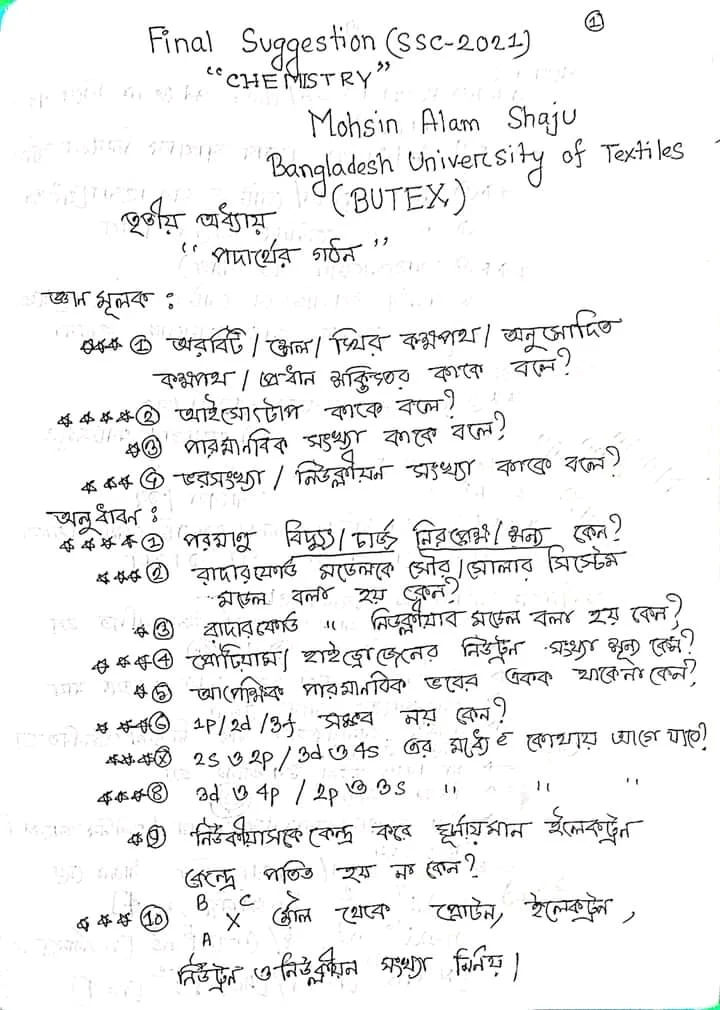 ①
Final Suggestion (SSC-2021)
"CHEMISTRY"
Mohsin Alam Shaju
Bangladesh University of Textiles
(BUTEX)
তৃতীয় অধ্যায়
"পদার্থের গঠন"
জ্ঞান মূলক :
*** ① অরবিট / শেল / স্থির কক্ষপথ / অনুমোদিত
কক্ষপথ / প্রধান শক্তিস্তর কাকে বলে?
**** ② আইসোটোপ কাকে বলে?
* ③ পারমানবিক সংখ্যা কাকে বলে?
*** ৪ ভরসংখ্যা / নিউক্লীয়ন সংখ্যা কাকে বলে?
অনুধাবন :
**** ① পরমাণু বিদ্যুৎ / চার্জ নিরপেক্ষ / শূন্য কেন?
*** ② রাদারফোর্ড মডেলকে সৌর / সোলার সিস্টেম
মডেল বলা হয় কেন?
* ③ রাদারফোর্ড " নিউক্লীয়ার মডেল বলা হয় কেন?
*** ④ প্রোটিয়াম / হাইড্রোজেনের নিউট্রন সংখ্যা শূন্য কেন?
* ⑤ আপেক্ষিক পারমানবিক ভরের একক থাকেনা কেন?
*** ⑥ 1p / 2d / 3f সম্ভব নয় কেন?
*** 2s ও 2p / 3d ও 4s এর মধ্যে e কোথায় আগে যাবে?
*** ⑧ 3d ও 4p / 2p ও 3s " " "
* ⑨ নিউক্লীয়াসকে কেন্দ্র করে ঘূর্নায়মান ইলেকট্রন
কেন্দ্রে পতিত হয় না কেন?
*** ⑩ B C A X মৌল থেকে প্রোটন, ইলেকট্রন,
নিউট্রন ও নিউক্লীয়ন সংখ্যা নির্নয়।